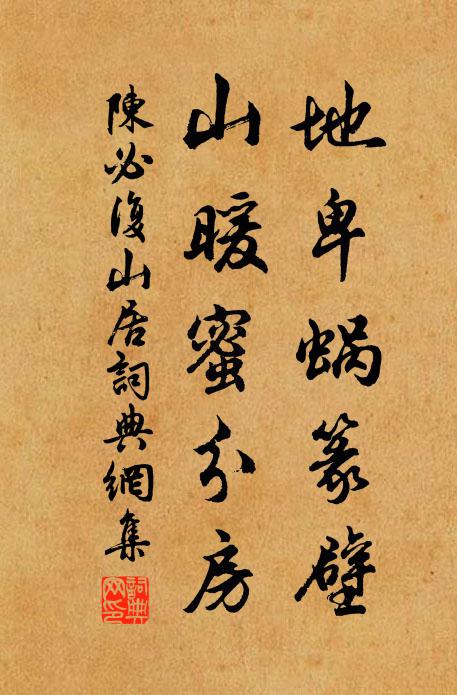 地卑蝸篆壁
山暖蜜分房
陳必復山居詞典網集
詞典網印